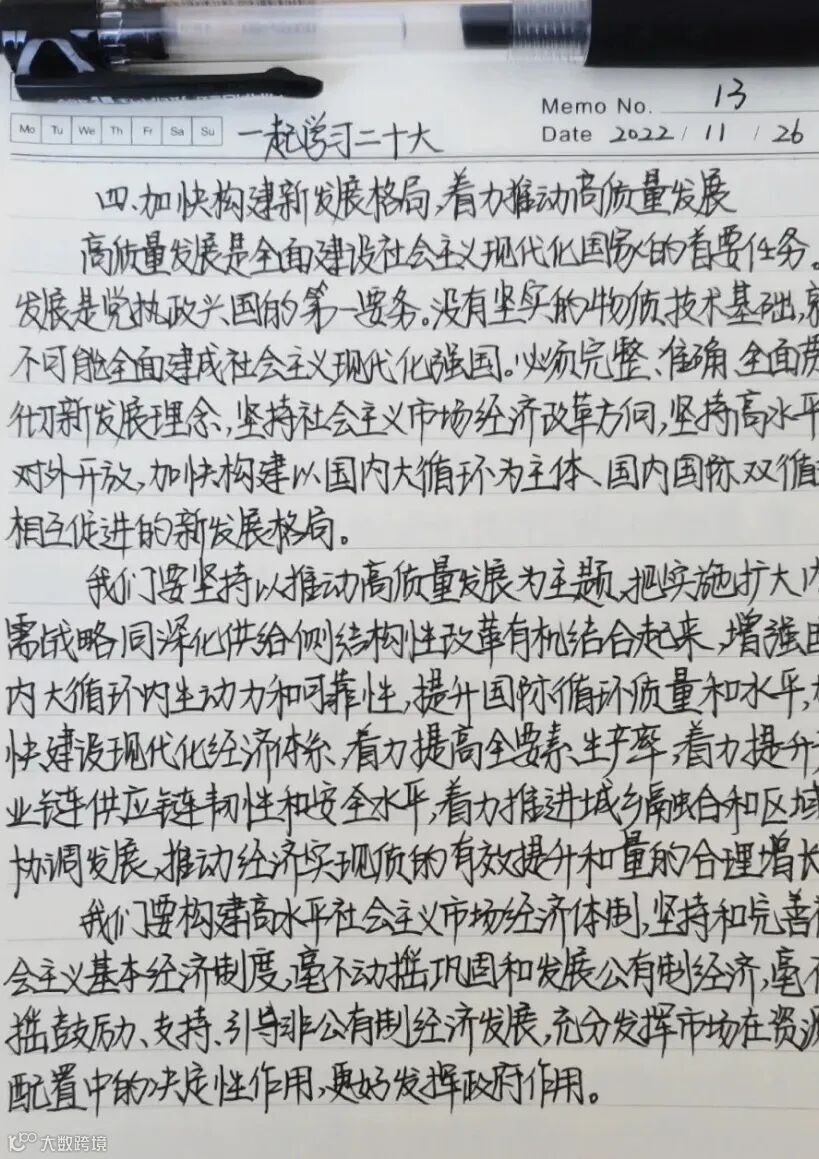 Memo No. 13
Mo Tu We Th Fr Sa Su
Date 2022/11/26
一起学习二十大
四、加快构建新发展格局,着力推动高质量发展
高质量发展是全面建设社会主义现代化国家的首要任务。
发展是党执政兴国的第一要务。没有坚实的物质技术基础,就
不可能全面建成社会主义现代化强国。必须完整、准确、全面贯
彻新发展理念,坚持社会主义市场经济改革方向,坚持高水平
对外开放,加快构建以国内大循环为主体、国内国际双循
相互促进的新发展格局。
我们要坚持以推动高质量发展为主题、把实施扩大内
需战略同深化供给侧结构性改革有机结合起来,增强国
内大循环内生动力和可靠性,提升国际循环质量和水平,
快建设现代化经济体系,着力提高全要素生产率,着力提升
业链供应链韧性和安全水平,着力推进城乡融合和区域
协调发展、推动经济实现质的有效提升和量的合理增长
我们要构建高水平社会主义市场经济体制,坚持和完善
会主义基本经济制度,毫不动摇巩固和发展公有制经济,毫不
摇鼓励、支持、引导非公有制经济发展,充分发挥市场在资源
配置中的决定性作用,更好发挥政府作用。
大数跨境